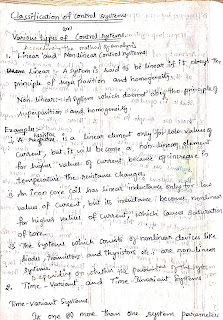 Classification of Control systems
or
Various types of Control systems
According the method of analysis
1. Linear and Nonlinear Control systems:
Linear - A system is said to be linear if it obeys the
principle of superposition and homogenity.
Non-linear - A system which doesnot obey the principle of
superposition and homogenity.
Example:
i) A register is a linear element only for low values of
current, but it will become a non-linear element
for higher values of current because of increase in
temperature the resistance changes.
ii) An iron core coil has linear inductance only for low
values of current, but its inductance becomes nonlinear
for higher values of current, which causes saturation
of core.
iii) The systems which consists of nonlinear devices like
diodes, transistors and thyristors etc., are non-linear
systems.
Depending on whether the parameters of the system
2. Time-Variant and Time Invariant Systems
Time-variant Systems
If one or more than one system parameters